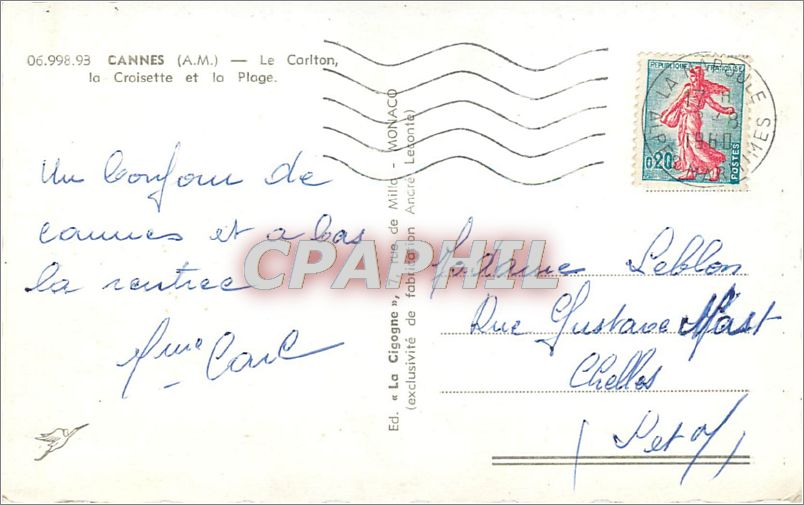 06.998.93 CANNES (A.M.) — Le Carlton,
la Croisette et la Plage.
Un bonjour de
cannes et a bas
la rentree
Mme
Ed. « La Cigogne », rue de Millo - MONACO
(exclusivité de fabrication André Leconte)
REPUBLIQUE FRANÇAISE
0,20
POSTES
1960
ALPES MARITIMES
CPAPHIL
Madame Leblon
Rue Gustave Nast
Chelles
(S et M)